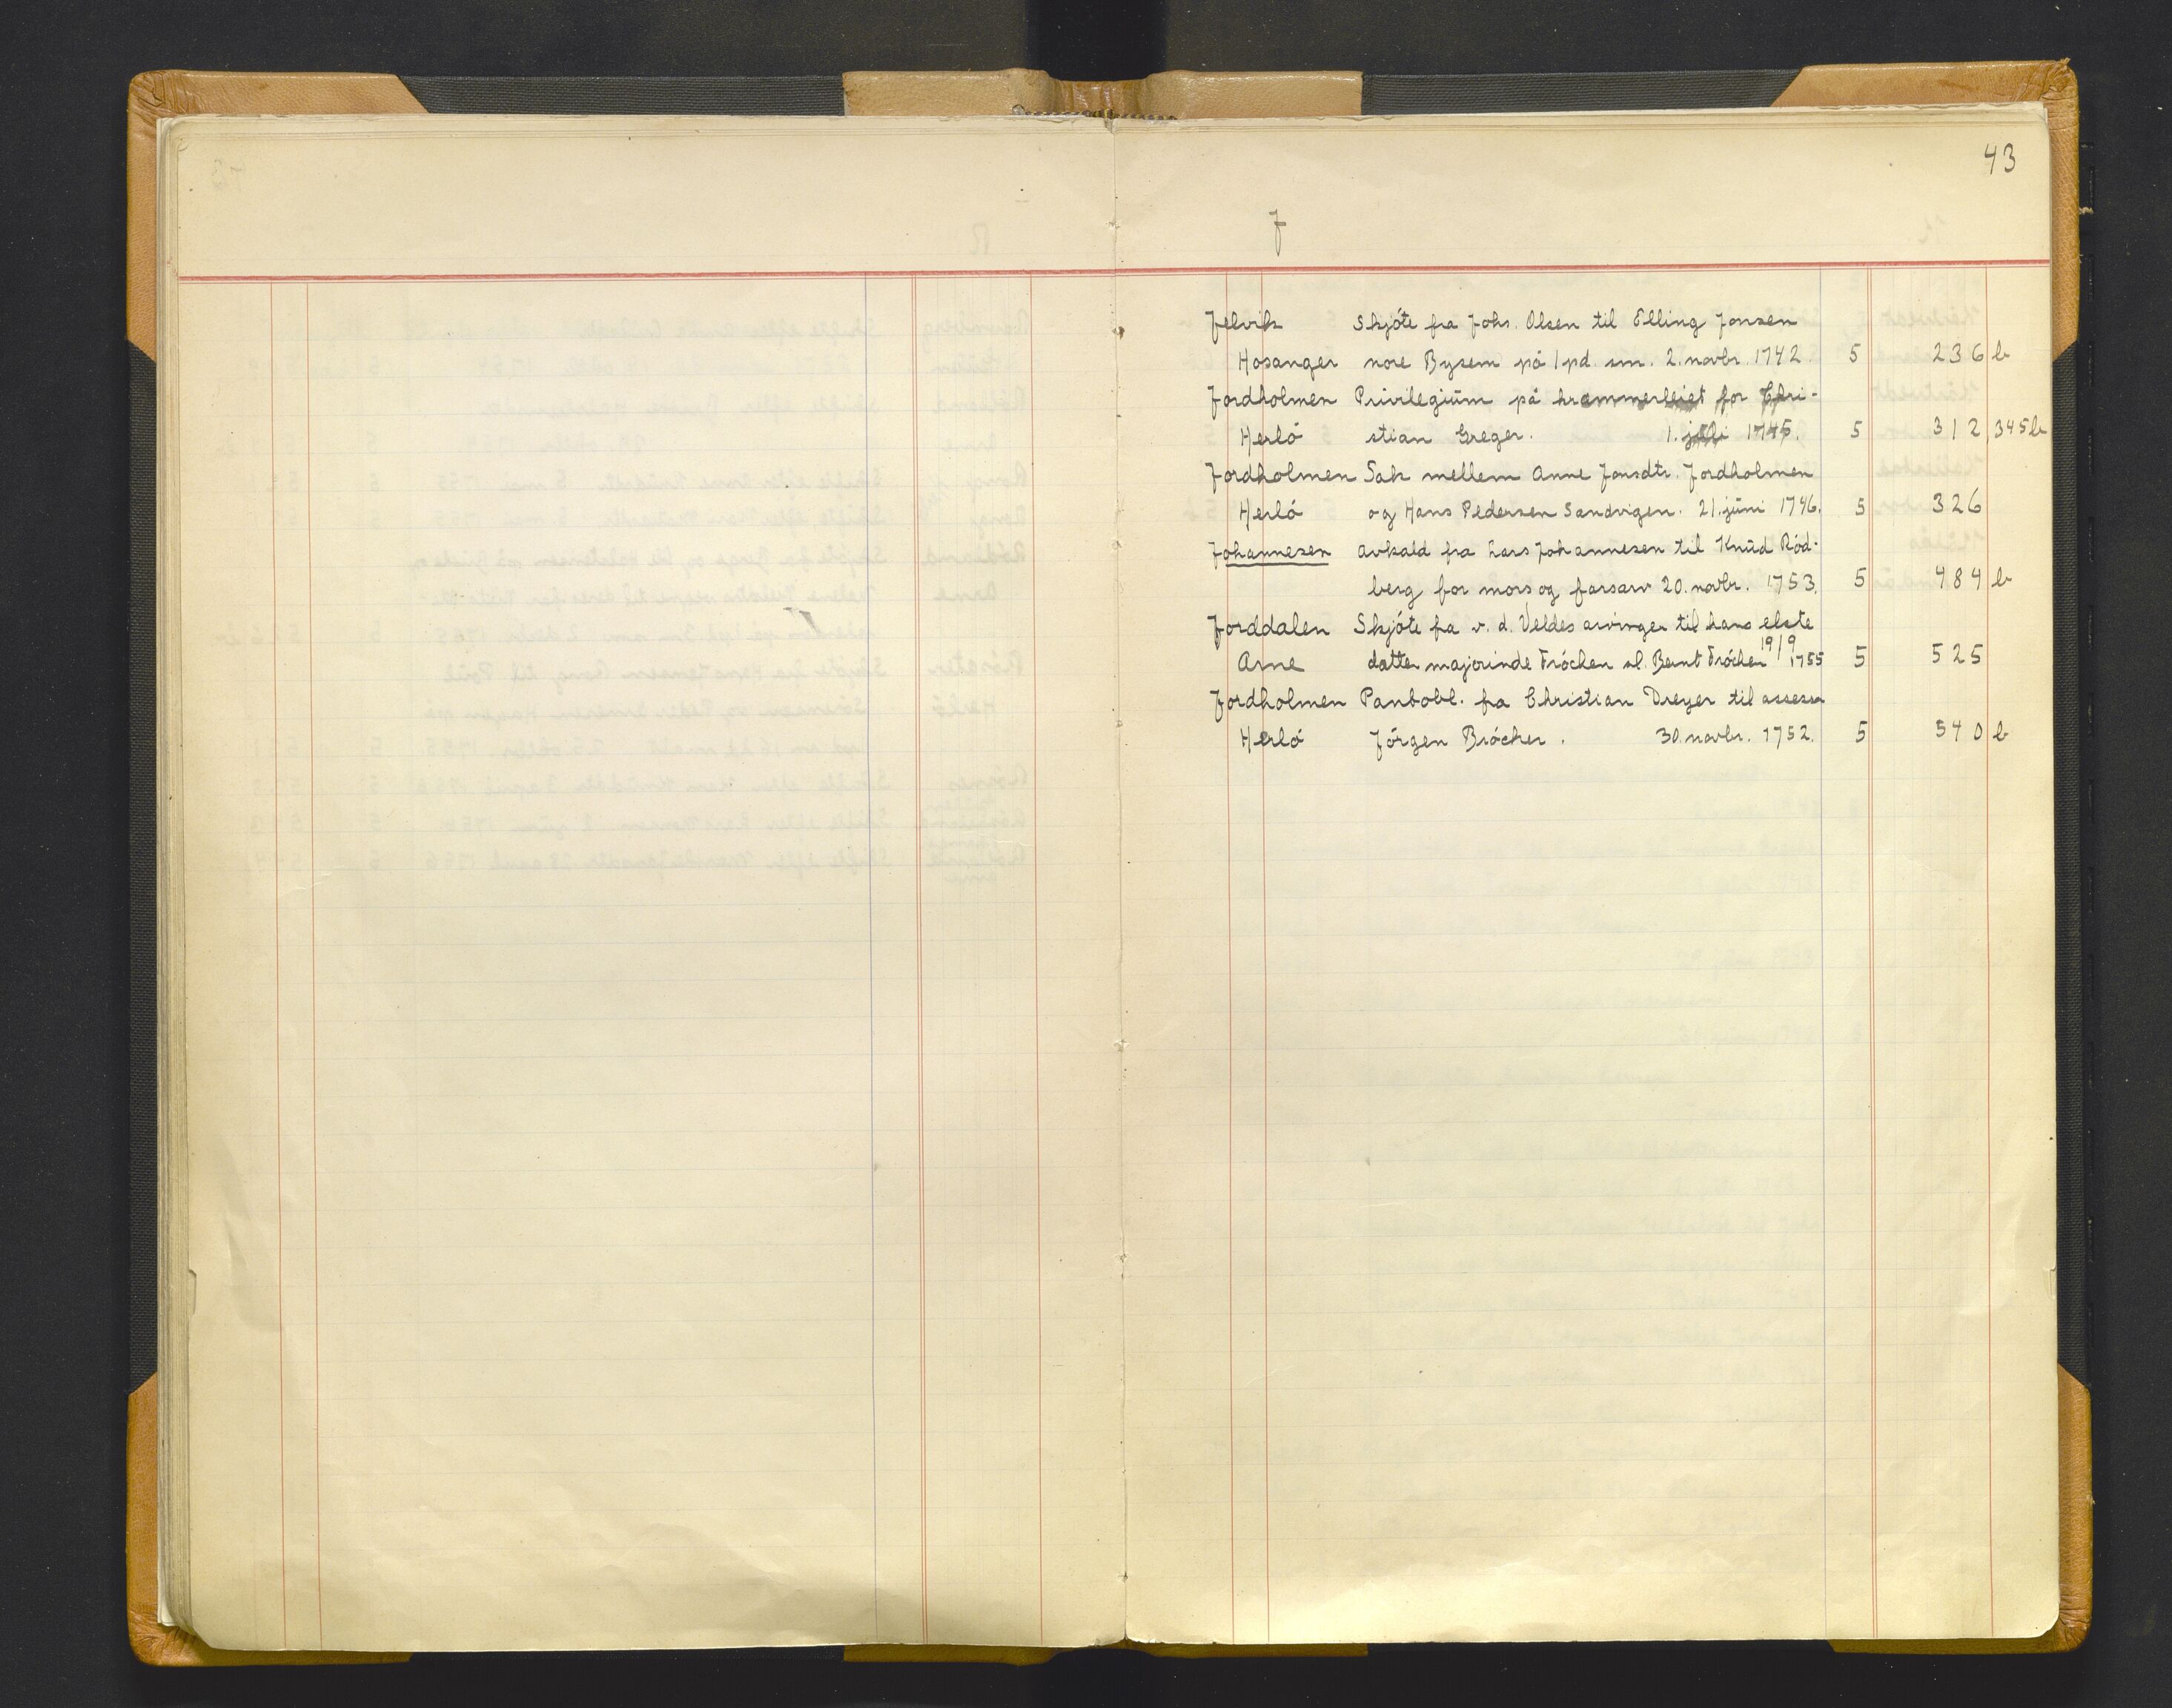 43
J
Jelvik Skjóte fra Johs. Olsen til Elling Jonsen
Hosanger nore Bysem på 1 pd. sm. 2. novbr. 1742. 5 236 b
Jordholmen Privilegiüm på kræmmerleiet for Chri-
Herló stian Greger. 1. jüli 1745. 5 312 345 b
Jordholmen Sak mellem Anne Jonsdtr. Jordholmen
Herló og Hans Pedersen Sandvigen. 21. jüni 1746. 5 326
Johannesen avkald fra Lars Johannesen til Knüd Ród-
berg for mors og farsarv 20. novbr. 1753. 5 484 b
Jorddalen Skjóte fra v. d. Veldes arvinger til hans elste
Arne datter majorinde Fróchen sl. Bernt Fróchen 19/9 1755 5 525
Jordholmen Pantobl. fra Christian Dreyer til assessor
Herló Jórgen Brócher. 30. novbr. 1752. 5 540 b